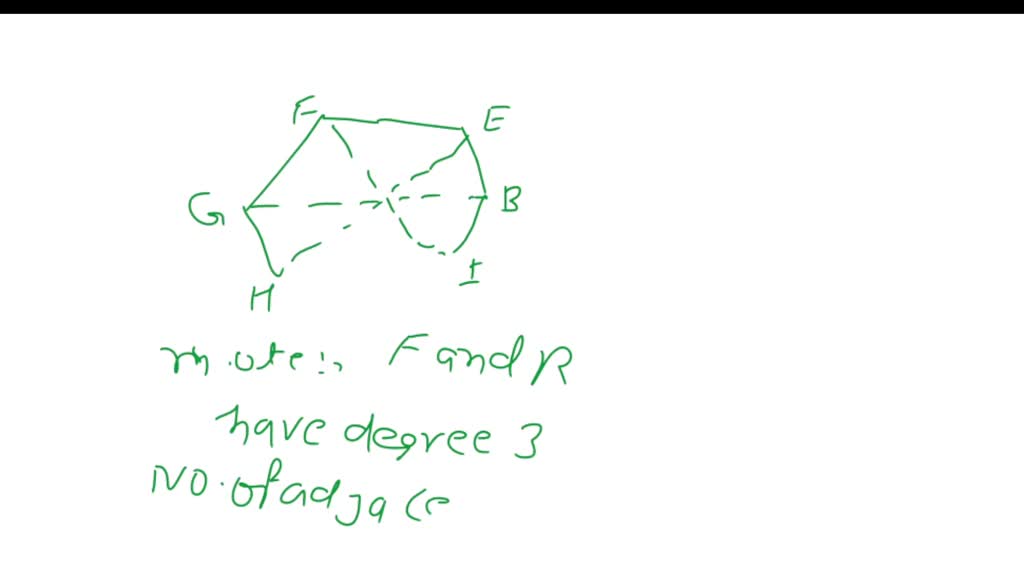 F
E
G
B
H
I
note:- F and R
have degree 3
No. of adjace